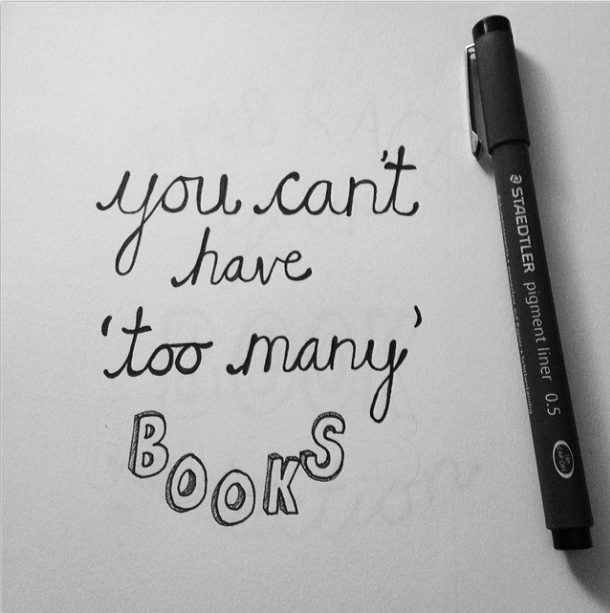 you can't
have
'too many'
BOOKS
STAEDTLER pigment liner 0.5